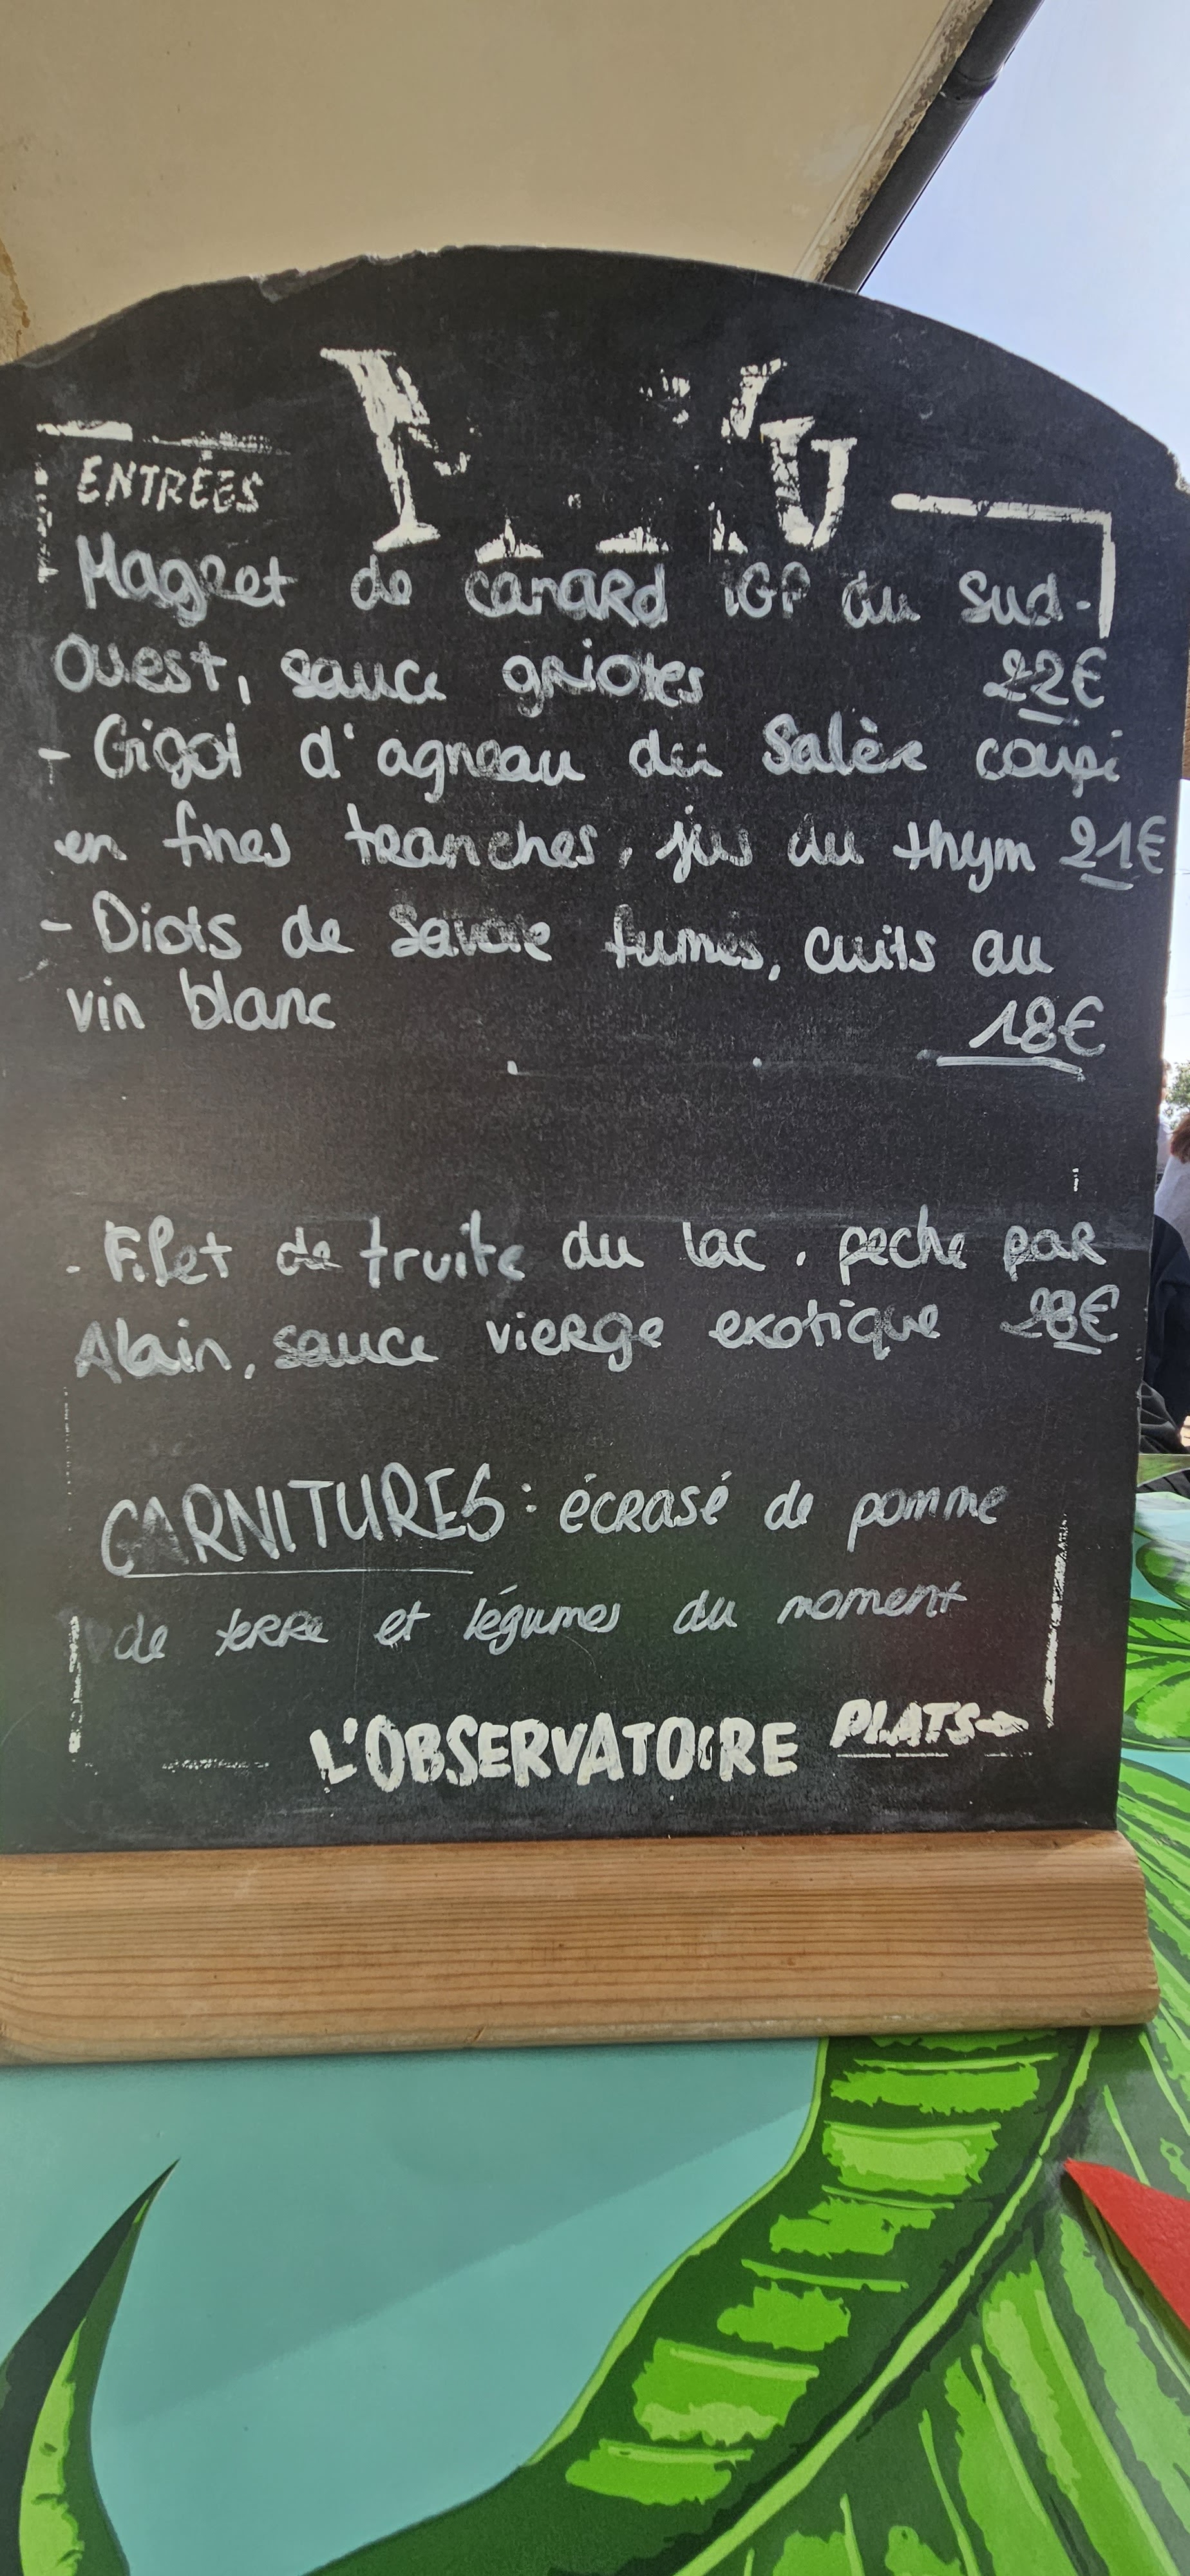 ENTRÉES
Magret de canard IGP du Sud-
Ouest, sauce griotes 22€
- Gigot d'agneau du Salèr coupé
en fines tranches, jus du thym 21€
- Diots de Savoie fumés, cuits au
vin blanc 18€
- Filet de truite du lac. peche par
Alain, sauce vierge exotique 28€
GARNITURES : écrasé de pomme
de terre et légumes du moment
L'OBSERVATOIRE PLATS